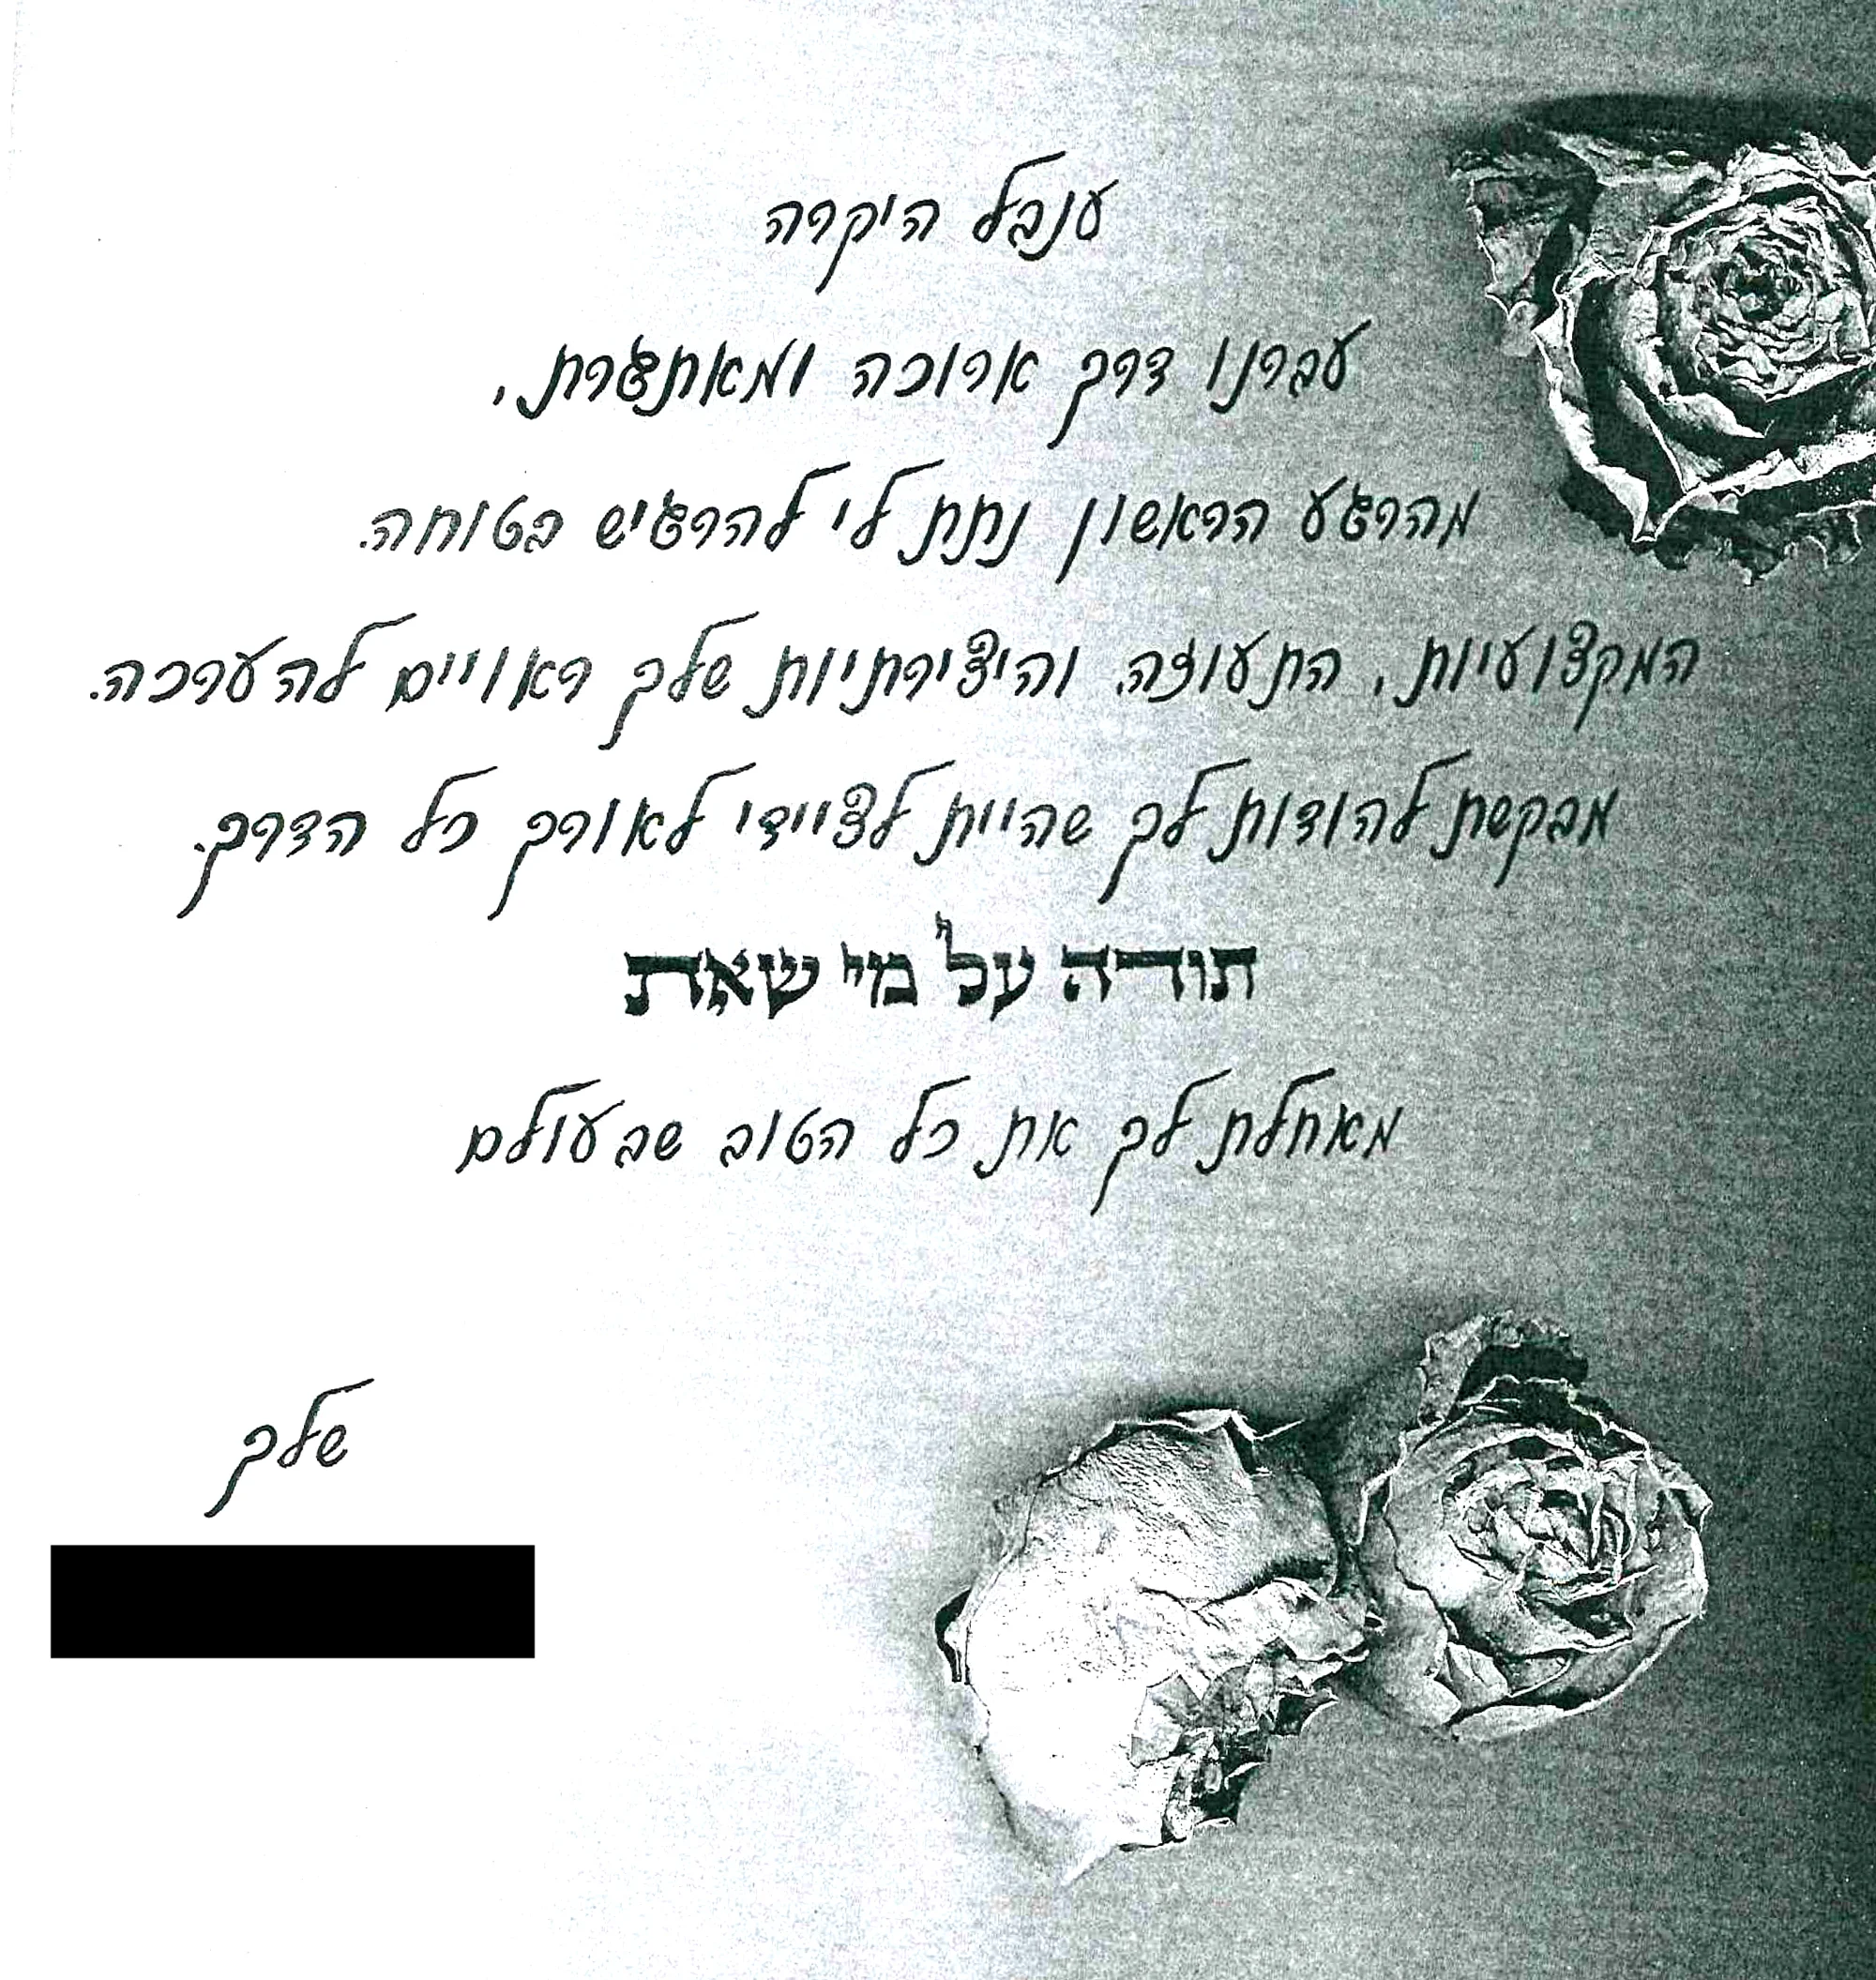 ענבל היקרה
עברנו דרך ארוכה ומאתגרת,
מהרגע הראשון נתת לי להרגיש בטוחה.
המקצועיות, התעוזה, והיצירתיות שלך ראויים להערכה.
מבקשת להודות לך שהיית לציידי לאורך כל הדרך.
תודה על מי שאת
מאחלת לך את כל הטוב שבעולם
שלך